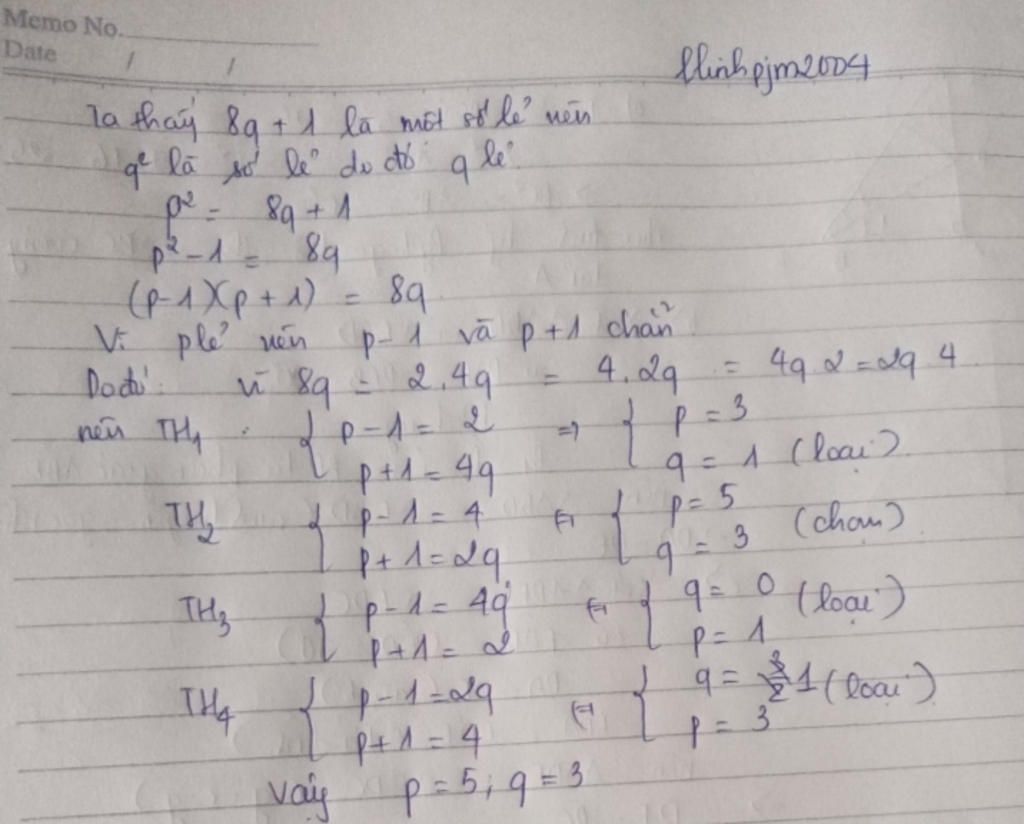 Memo No.
Date / /
llinhpjm2004
Ta thấy 8q + 1 là một số lẻ nên
q² là số lẻ do đó q lẻ
p² = 8q + 1
p² - 1 = 8q
(p-1)(p + 1) = 8q
Vì p lẻ nên p - 1 và p + 1 chẵn
Do đó vì 8q = 2.4q = 4.2q = 4q.2 = 2q 4
nên TH₁ : { p - 1 = 2 => { p = 3
p + 1 = 4q q = 1 (loại)
TH₂ { p - 1 = 4 <=> { p = 5 (chọn)
p + 1 = 2q q = 3
TH₃ { p - 1 = 4q <=> { q = 0 (loại)
p + 1 = 2 p = 1
TH₄ { p - 1 = 2q <=> { q = 1 (loại)
p + 1 = 4 p = 3
Vậy p = 5; q = 3